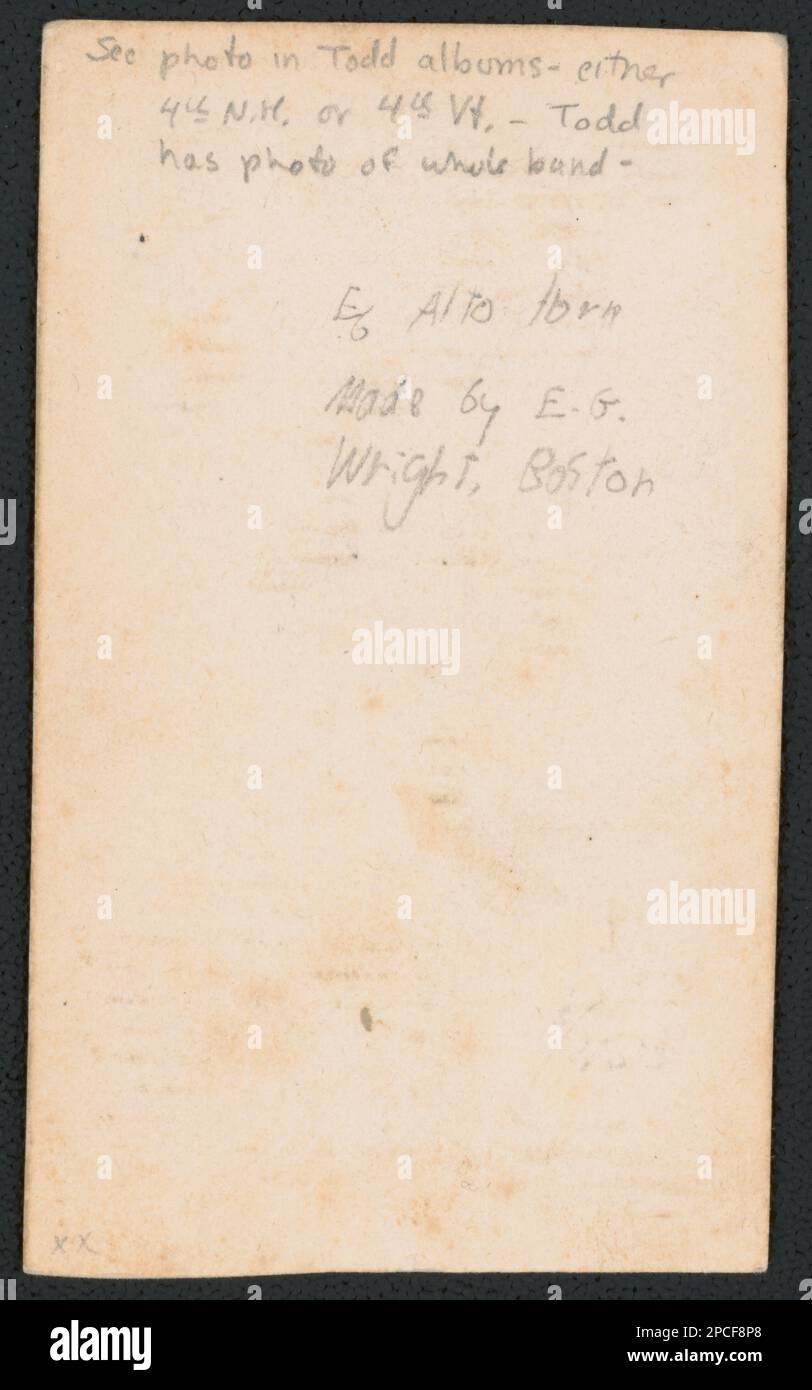 See photo in Todd albums - either
4th N.H. or 4th Vt. - Todd
has photo of whole band -
Eb Alto horn
Made by E. G.
Wright, Boston
xx
alamy
alamy
alamy
alamy
Image ID: 2PCF8P8
www.alamy.com